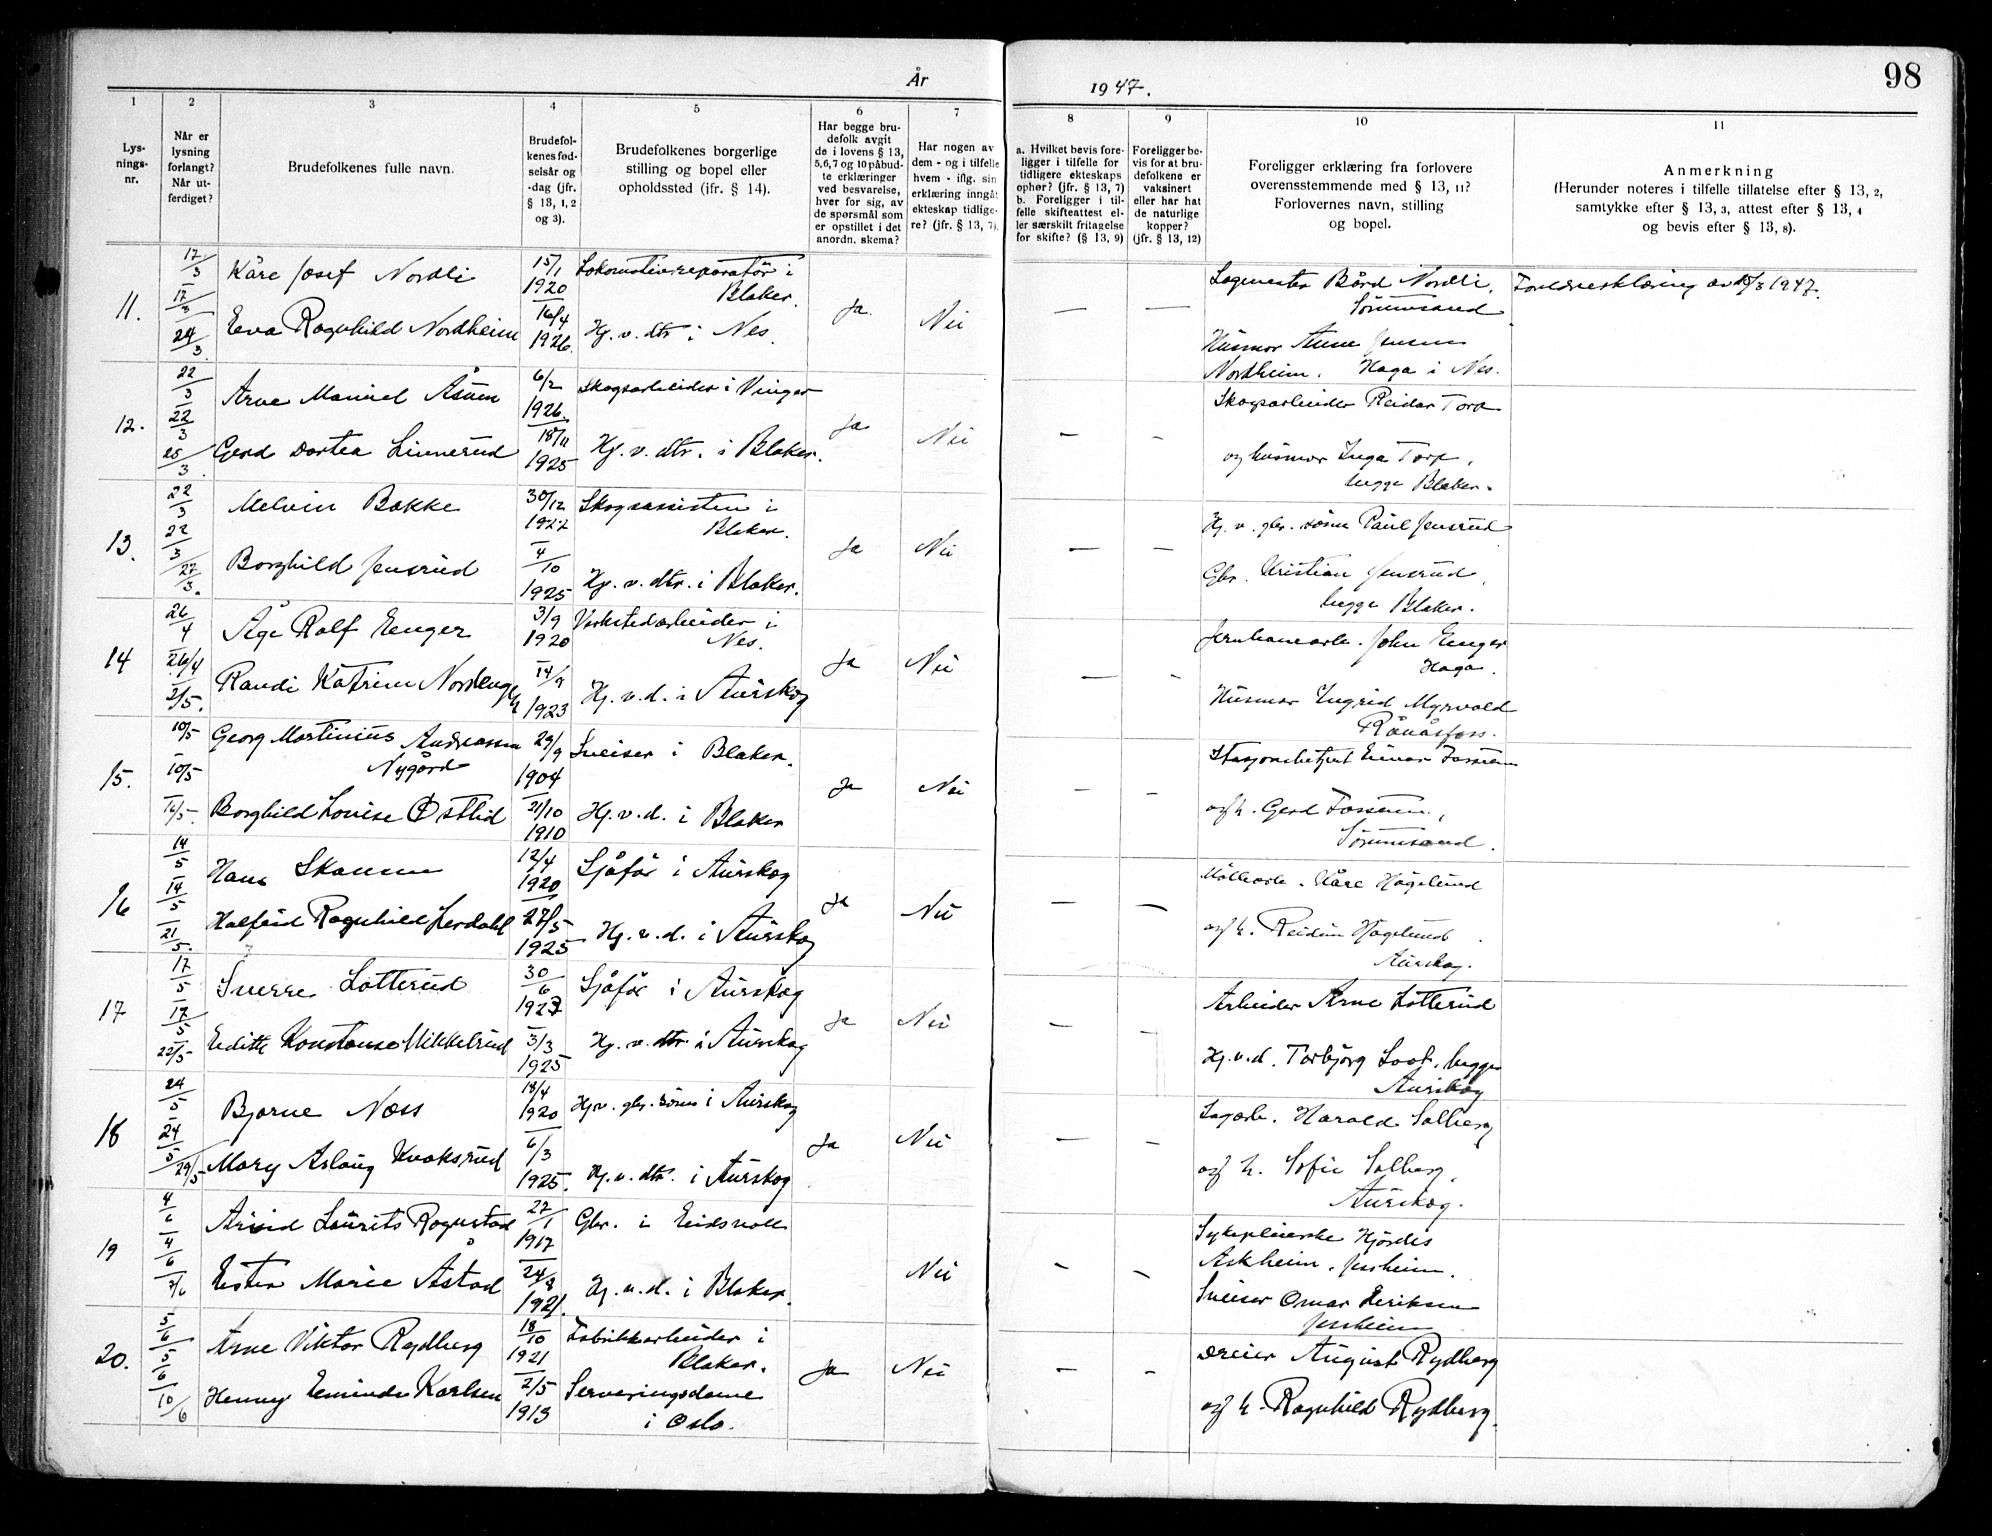 År 1947.
98
1 2 3 4 5 6 7 8 9 10 11
Lysningsnr.
Når er lysning forlangt? Når utferdiget?
Brudefolkenes fulle navn.
Brudefolkenes fødselsår og -dag (jfr. § 13, 1, 2 og 3).
Brudefolkenes borgerlige stilling og bopel eller opholdssted (jfr. § 14).
Har begge brudefolk avgit de i lovens § 13, 5, 6, 7 og 10 påbudte erklæringer ved besvarelse, hver for sig, av de spørsmål som er opstillet i det anordn. skema?
Har nogen av dem - og i tilfelle hvem - iflg. sin erklæring inngåt ekteskap tidligere? (jfr. § 13, 7).
a. Hvilket bevis foreligger i tilfelle for tidligere ekteskaps ophør? (jfr. § 13, 7) b. Foreligger i tilfelle skifteattest eller særskilt fritagelse for skifte? (§ 13, 9)
Foreligger bevis for at brudefolkene er vaksinert eller har hat de naturlige kopper? (jfr. § 13, 12)
Foreligger erklæring fra forlovere overensstemmende med § 13, 11? Forlovernes navn, stilling og bopel.
Anmerkning
(Herunder noteres i tilfelle tillatelse efter § 13, 2, samtykke efter § 13, 3, attest efter § 13, 4 og bevis efter § 13, 8).
11. 17/3 Kåre Josef Nordli 15/1 1920 Lokomotivreparatør i Blaker. Ja. Nei — — Lagmester Bård Nordli, Sørumsand Foreldreerklæring av 15/3 1947.
17/3 24/3 Eva Ragnhild Nordheim 16/4 1926. Hj. v. dtr. i Nes. Husmor Anne Jensen Nordheim. Haga i Nes.
12. 22/3 Arne Manuel Åsum 6/2 1926. Skogsarbeider i Vinger Ja Nei — — Skogsarbeider Reidar Torp
22/3 25/3 Gerd Dortea Linnerud 18/11 1925 Hj. v. dtr. i Blaker. og husmor Inga Torp, begge Blaker.
13. 22/3 Melvin Bakke 30/12 1922 Skogsassistent i Blaker. Ja Nei — — Hj. v. gbr. sønn Paul Jensrud
22/3 27/3. Borghild Jensrud 4/10 1925 Hj. v. dtr. i Blaker. Gbr. Kristian Jensrud, begge Blaker.
14 26/4 Åge Rolf Enger 3/9 1920 Verkstedarbeider i Nes. Ja Nei — — Jernbanearb. John Enger Haga.
26/4 2/5. Randi Katrine Nordengen 14/9 1923 Hj. v. d. i Aurskog Husmor Ingrid Myrvold Rånåsfoss.
15. 10/5 Georg Martinius Andreassen Nygård 29/9 1904 Sveiser i Blaker. Ja Nei — — Stasjonsbetjent Einar Fossum
10/5 16/5 Borghild Lovise Østlid 21/10 1910 Hj. v. d. i Blaker og h. Gerd Fossum, Sørumsand.
16 14/5 Hans Skansen 12/4 1920 Sjåfør i Aurskog Ja Nei — — Møllearb. Kåre Høgelund
14/5 21/5. Halfrid Ragnhild Lerdahl 27/5 1925 Hj. v. d. i Aurskog og h. Reidun Høgelund. Aurskog.
17 17/5 Sverre Lotterud 30/6 1923 Sjåfør i Aurskog Ja Nei — — Arbeider Arne Lotterud
17/5 22/5 Edith Konstanse Mikkelrud 3/3 1925 Hj. v. dtr. i Aurskog Hj. v. d. Torbjørg Looft, begge Aurskog
18 24/5 Bjarne Næss 18/4 1920 Hj. v. gbr. sønn i Aurskog Ja Nei — — Sagarb. Harald Solberg
24/5 29/5 Mary Aslaug Kvaksrud 6/3 1925. Hj. v. dtr. i Aurskog og h. Sofie Solberg, Aurskog.
19 4/6 Arvid Laurits Rognstad 27/1 1917 Gbr. i Eidsvoll Nei — — Sykepleierske Hjørdis Askheim, Jessheim.
4/6 7/6 Ester Marie Åstad 24/8 1921. Hj. v. d. i Blaker. Sveiser Omar Eriksen Jessheim
20. 5/6 Arne Viktor Rydberg 18/10 1921 Fabrikkarbeider i Blaker. Ja Nei — — Dreier August Rydberg
5/6 10/6 Henny Eminde Karlsen 2/5 1913 Serveringsdame i Oslo. og h. Ragnhild Rydberg.